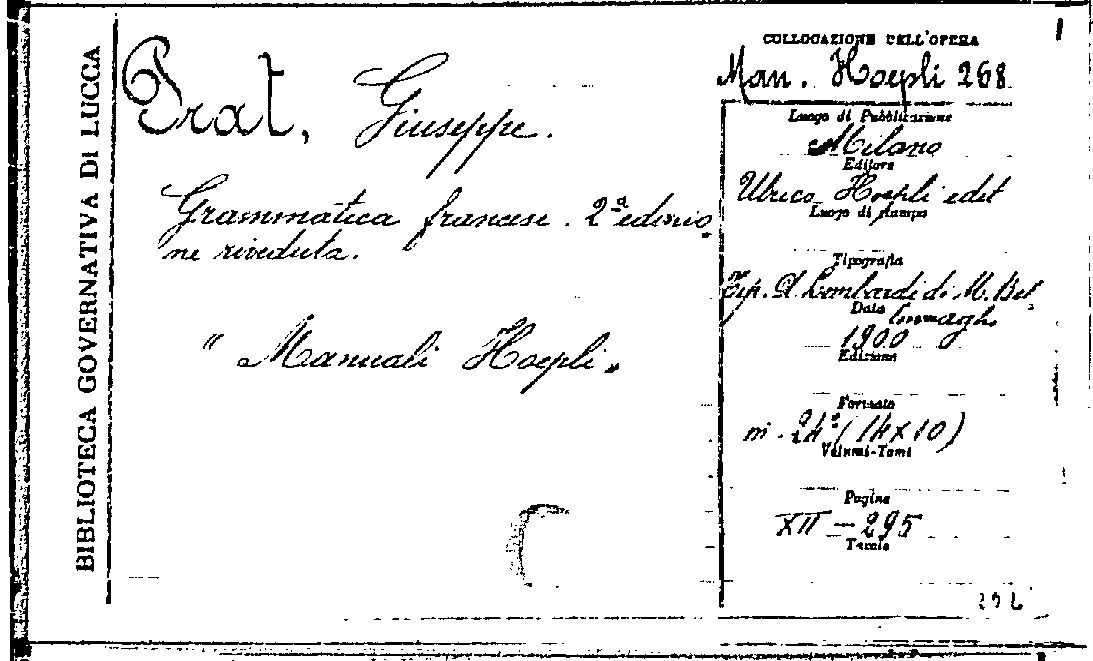 BIBLIOTECA GOVERNATIVA DI LUCCA
Prat, Giuseppe.
Grammatica francese. 2ª edizio
ne riveduta.
"Manuali Hoepli"
COLLOCAZIONE DELL'OPERA
Man. Hoepli 268
Luogo di Pubblicazione
Milano
Editore
Ulrico Hoepli edit
Luogo di stampa
Tipografia
Tip. A Lombardi di M. Bel
Data
linzaghi
1900
Edizione
Formato
in-24º (14x10)
Volumi-Tomi
Pagine
XII - 295
Tavole